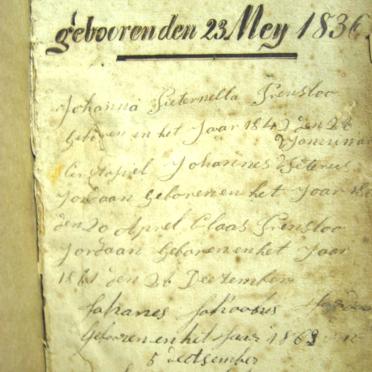 geboren den 23 Mey 1836
Johanna Pieternella Prensloo
Geboren en het Jaar 1842 den 28
Johannes Pieterus
Jordaan Geboren en het Jaar
den 20 Aprel Claas Prensloo
Jordaan Geboren en het Jaar
1861 den 26 Deczember
Johanes Jakoobus
Geboren en het Jaar 1863
5 dedsember